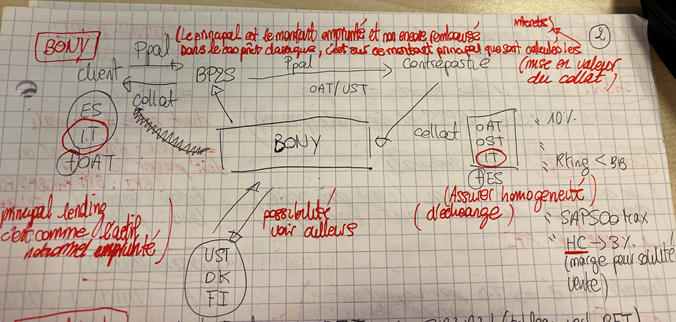 BONY
Ppal
(Le principal est le montant emprunté et non encore remboursé
Dans le cas prêt classique, c'est sur ce montant principal que sont calculés les
interets
2
client
BP2S
Ppal
contrepartie
(mise en valeur
du collat)
collat
OAT/UST
ES
I.T
+ OAT
BONY
collat
OAT
OST
IT
+ ES
10%
Rting < BB
(Assurer homogeneité)
(d'echange)
SAP500 Max
HC → 3%
(marge pour
vente)
principal lending
c'est comme l'actif
notionnel emprunté
possibilité
voir ailleurs
UST
DK
FI